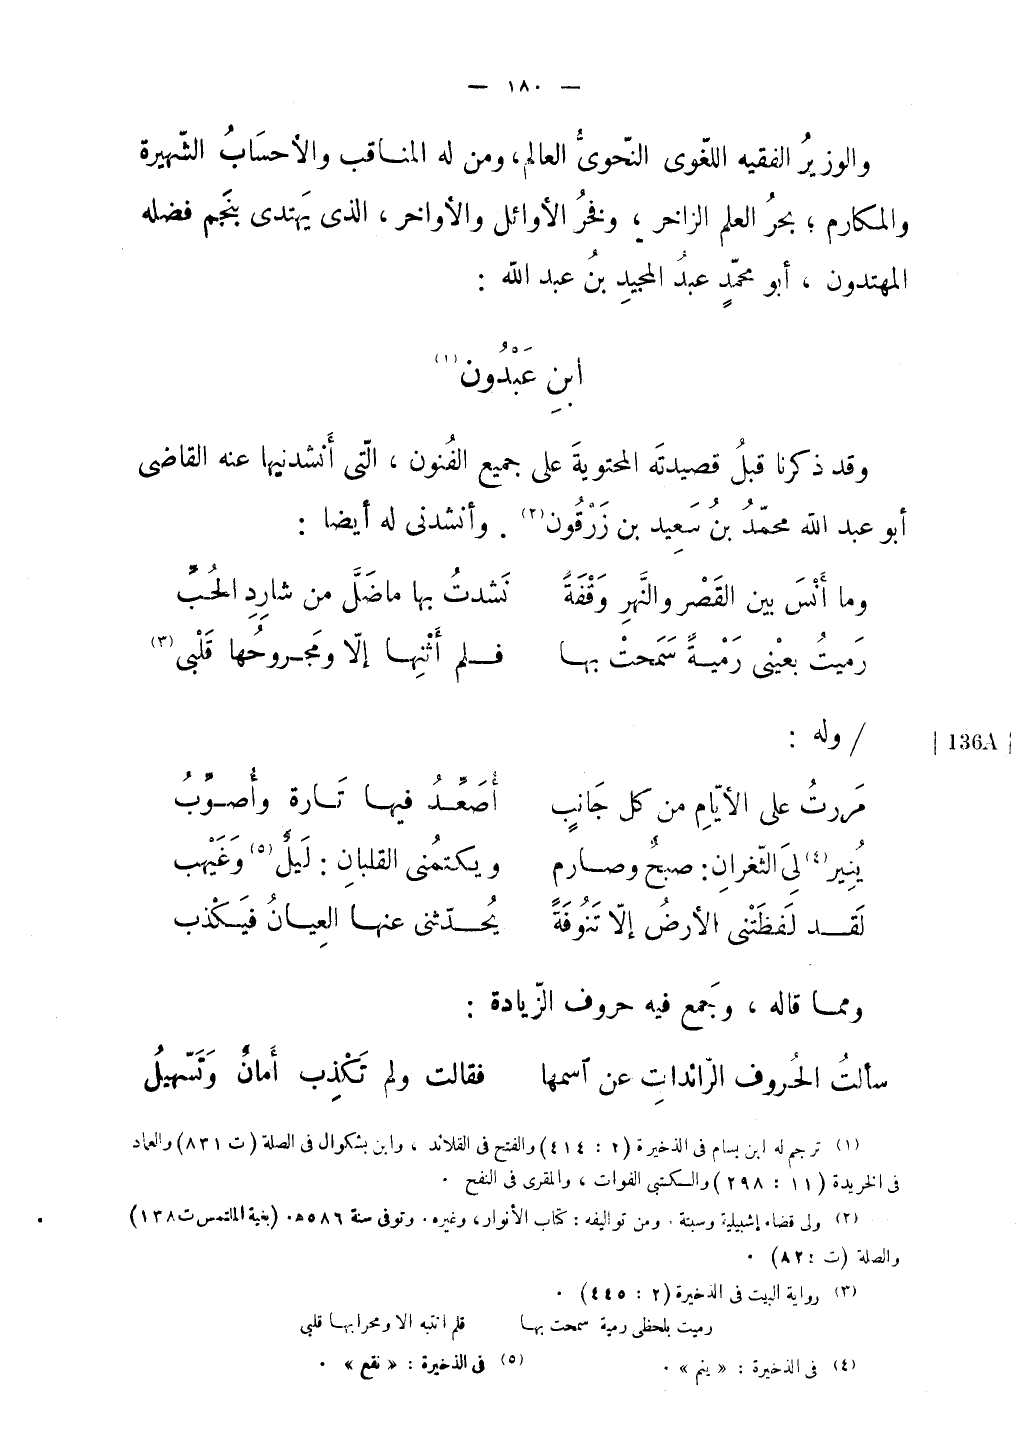 — ١٨٠ —
والوزيرُ الفقيه اللّغوى النّحوىُّ العالم، ومن له المنـاقب والأحسَابُ الشّهيرة
والمكارم ؛ بحرُ العلم الزاخر ؛ وفخرُ الأوائل والأواخر ، الذى يَهتدى بنَجم فضله
المهتدون ، أبو محمّدٍ عبدُ المجيدِ بنُ عبد اللّه :
ابنِ عَبْدُون(١)
وقد ذكرنا قبلُ قصيدتَه المحتويةَ على جميع الفُنون ، الّتى أَنشدنيها عنه القاضى
أبو عبد اللّه محمّدُ بنُ سَعِيد بن زَرْقُون(٢) . وأنشدنى له أيضا :
وما أَنْسَ بين القَصْر والنَّهرِ وَقْفَةً نَشدتُ بها ماضَلَّ من شارِدِ الحُبِّ
رَميتُ بعيْنى رَمْيـةً سَمَحتْ بهـا فـلم أَثْنِهـا إلّا ومَجـروحُها قَلْبى(٣)
/ وله : | 136A |
مَررتُ على الأيّامِ من كل جَانبٍ أُصَعِّـدُ فيهـا تَـارة وأُصـوِّبُ
يُنِير(٤) لِىَ الثّغرانِ: صبحٌ وصـارم ويكتمُنى القلبانِ : لَيلٌ(٥) وَغَيْهب
لَقـد لَفظَتْنى الأرضُ إلّا تَنُوفَةً يُحـدّثنى عنهـا العِيـانُ فيَـكْذب
ومما قاله ، وجَمع فيه حروف الزّيادة :
سألتُ الحُروف الزّائداتِ عن آسمها فقالت ولم تَكْذِب أَمانٌ وتَسْهيلُ
(١) ترجم له ابن بسام فى الذخيرة (٢ : ٤١٤) والفتح فى القلائد ، وابن بشكوال فى الصلة (ت ٨٣١) والعماد
فى الخريدة (١١ : ٢٩٨) والـكتبى الفوات ، والمقرى فى النفح .
(٢) ولى قضاء إشبيلية وسبتة . ومن تواليفه : كتاب الأنوار، وغيره. وتوفى سنة ٥٨٦ه. (بغية الملتمس ت ١٣٨)
والصلة (ت : ٨٢) .
(٣) رواية البيت فى الذخيرة (٢ : ٤٤٥) .
رميت بلحظى رمية سمحت بهـا فلم انتبه الا ومحرابهـا قلبى
(٤) فى الذخيرة : « ينم » . (٥) فى الذخيرة : « نقع » .